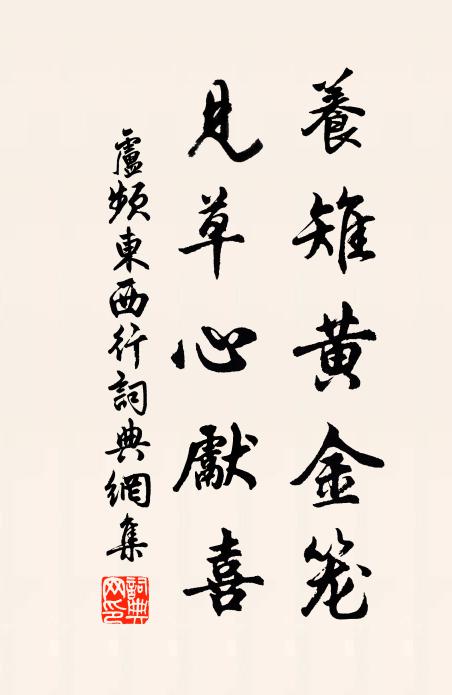 養雉黄金笼
見草心獻喜
盧頻東西行詞典網集
詞典网印